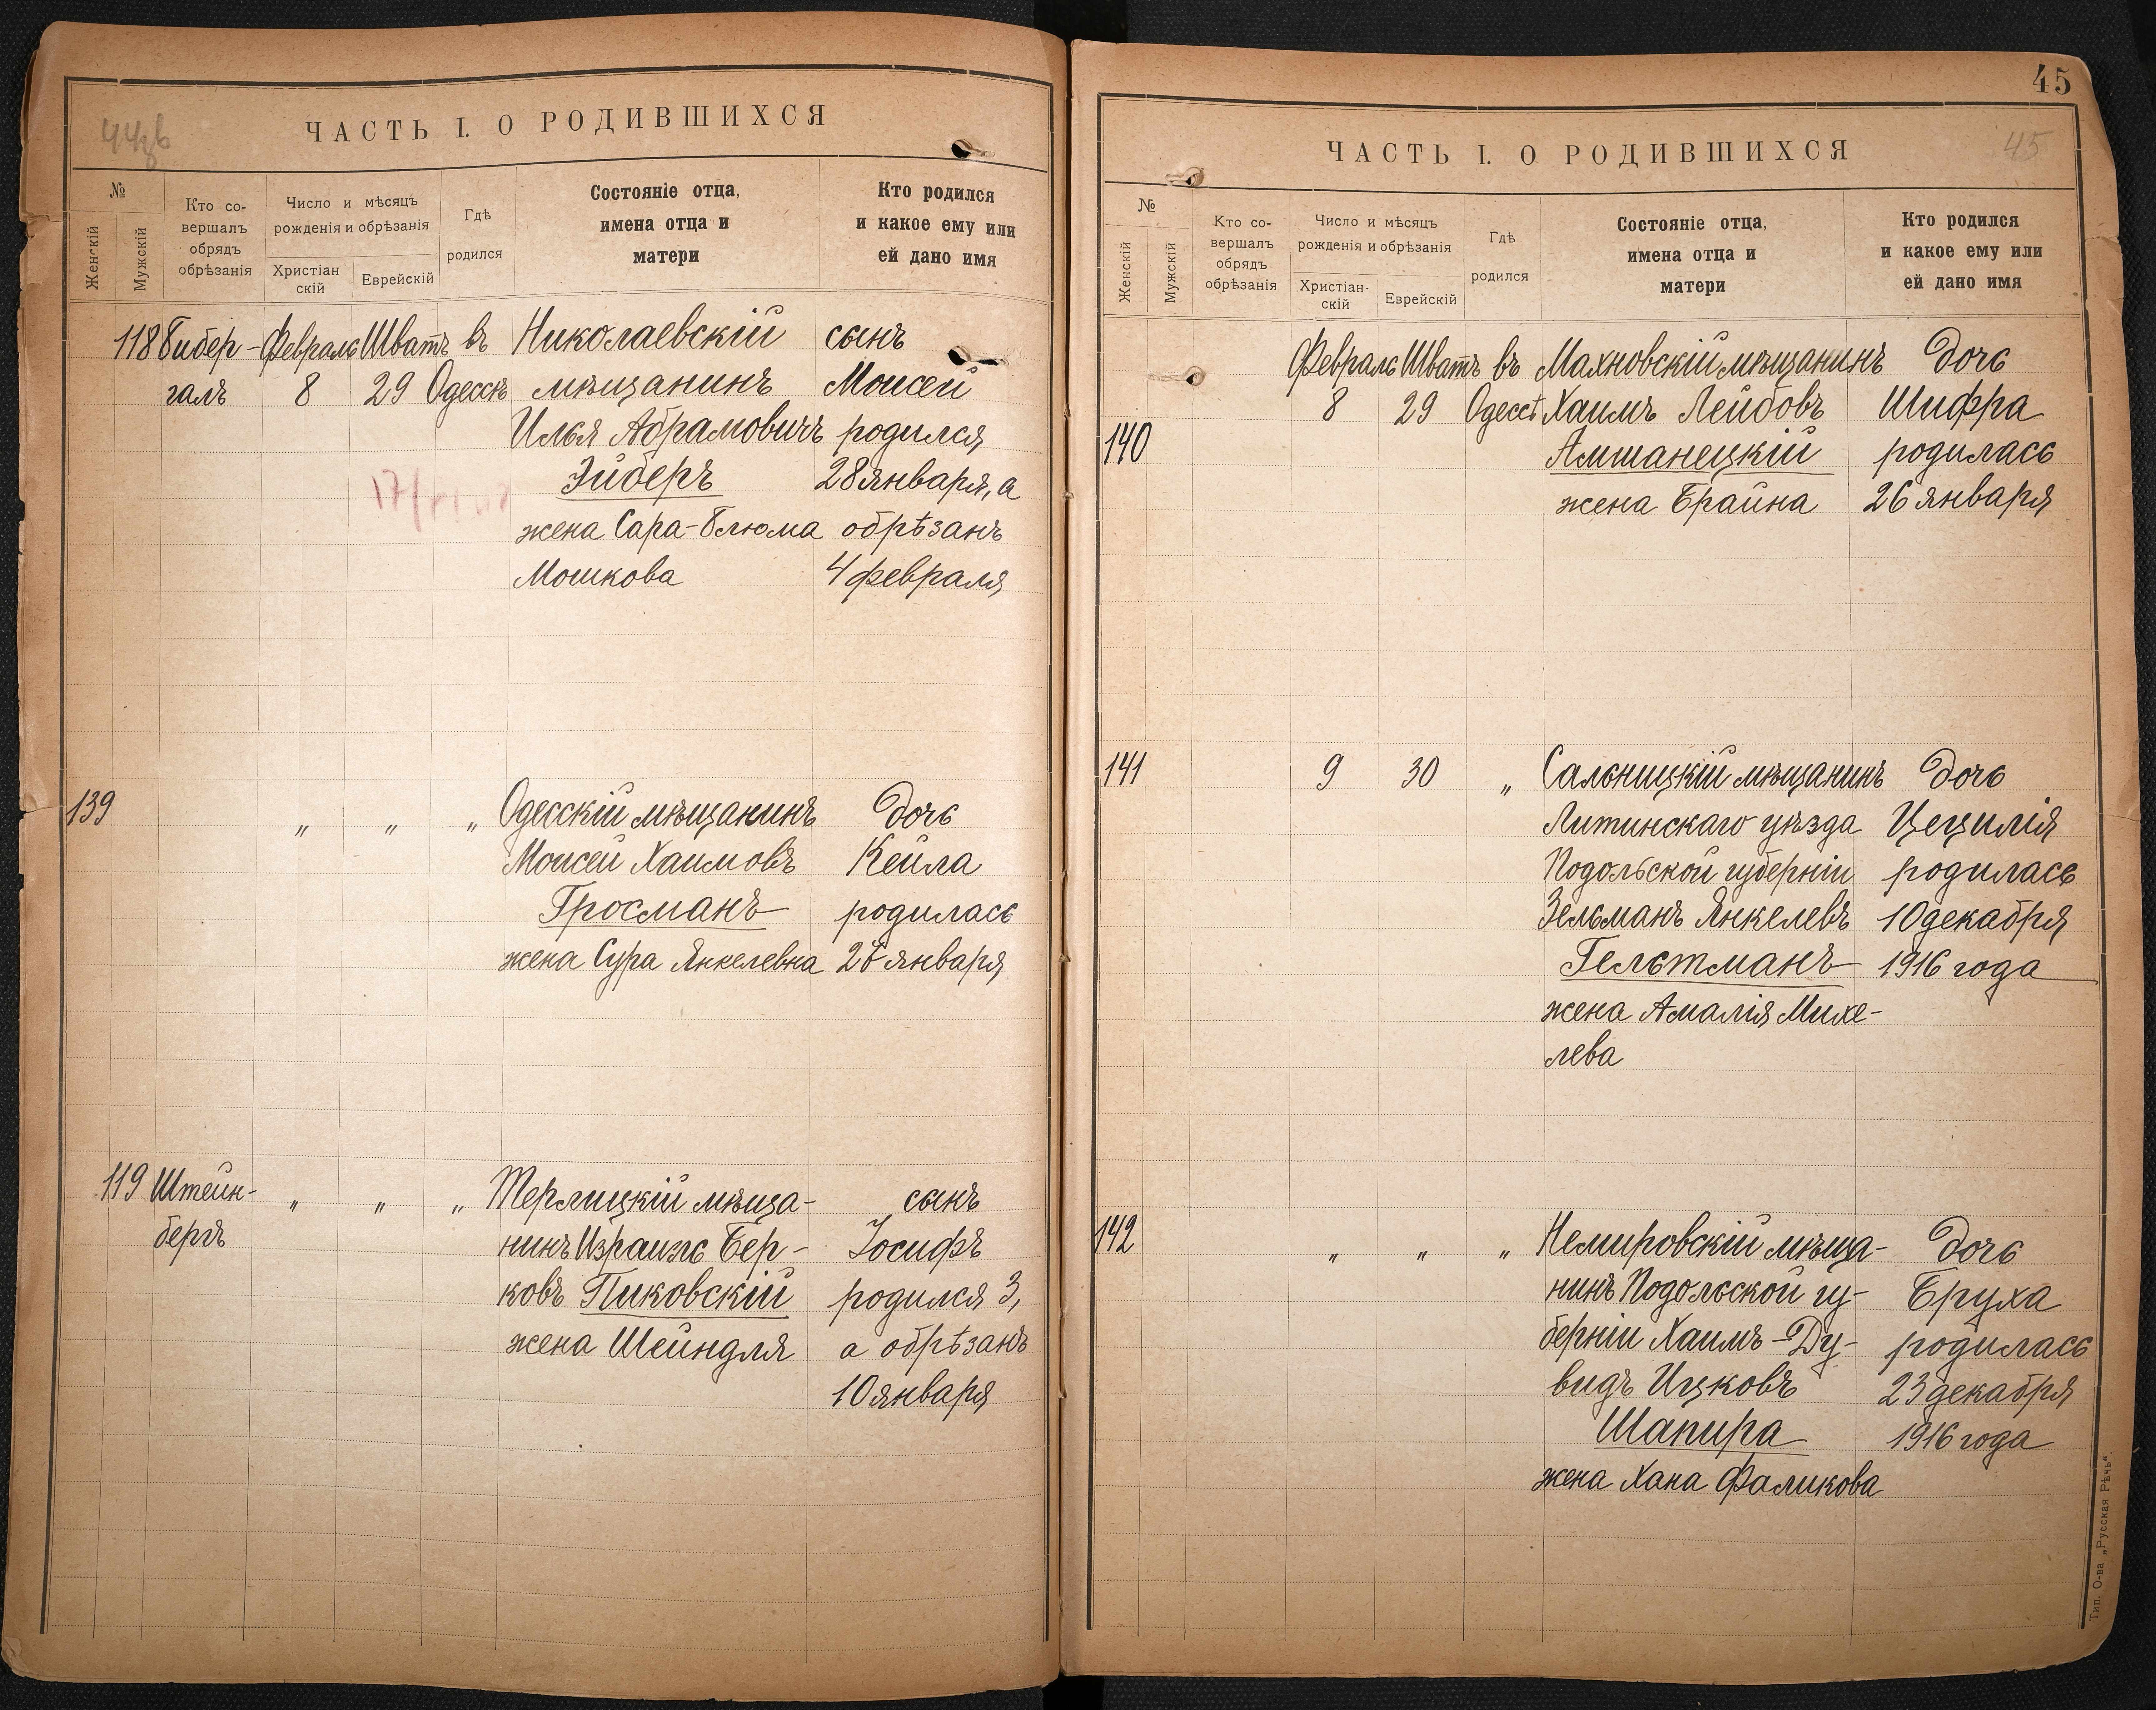 44об
ЧАСТЬ I. О РОДИВШИХСЯ
№
Женскій
Мужскій
Кто со-
вершалъ
обрядъ
обрѣзанія
Число и мѣсяцъ
рожденія и обрѣзанія
Христіан
скій
Еврейскій
Гдѣ
родился
Состояніе отца,
имена отца и
матери
Кто родился
и какое ему или
ей дано имя
118 Гибер- Февраль Шватъ въ Николаевскій сынъ
галъ 8 29 Одессѣ мѣщанинъ Моисей
Илья Абрамовичъ родился
Эйберъ 28 января, а
жена Сара-Блюма обрѣзанъ
Мошкова 4 февраля
139 „ „ „ Одесскій мѣщанинъ дочь
Моисей Хаимовъ Кейла
Гросманъ родилась
жена Сура Янкелевна 28 января
119 Штейн- „ „ „ Терлицкій мѣща- сынъ
бергъ нинъ Израиль Бер- Іосифъ
ковъ Пиковскій родился 3,
жена Шейндля а обрѣзанъ
10 января
45
45
ЧАСТЬ I. О РОДИВШИХСЯ
№
Женскій
Мужскій
Кто со-
вершалъ
обрядъ
обрѣзанія
Число и мѣсяцъ
рожденія и обрѣзанія
Христіан-
скій
Еврейскій
Гдѣ
родился
Состояніе отца,
имена отца и
матери
Кто родился
и какое ему или
ей дано имя
Февраль Шватъ въ Махновскій мѣщанинъ дочь
8 29 Одессѣ Хаимъ Лейбовъ Шифра
140 Амшанецкій родилась
жена Брайна 26 января
141 9 30 „ Сальницкій мѣщанинъ дочь
Литинскаго уѣзда Цецилія
Подольской губерніи родилась
Зельманъ Янкелевъ 10 декабря
Гельтманъ 1916 года
жена Амалія Михе-
лева
142 „ „ „ Немировскій мѣща- дочь
нинъ Подольской гу- Бруха
берніи Хаимъ-Ду- родилась
видъ Ицковъ 23 декабря
Шапира 1916 года
жена Хана Фаликова
Тип. О-ва „Русская Рѣчь“.